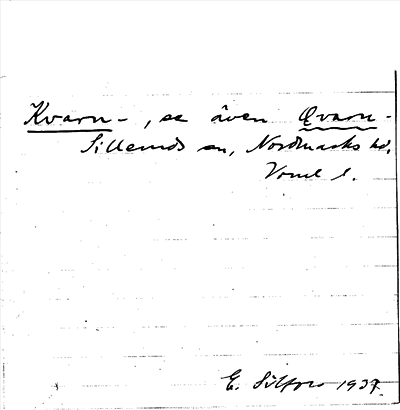 Kvarn-, se även Qvarn-
Silleruds sn, Nordmarks hd,
Vrml l.
E. 1937.